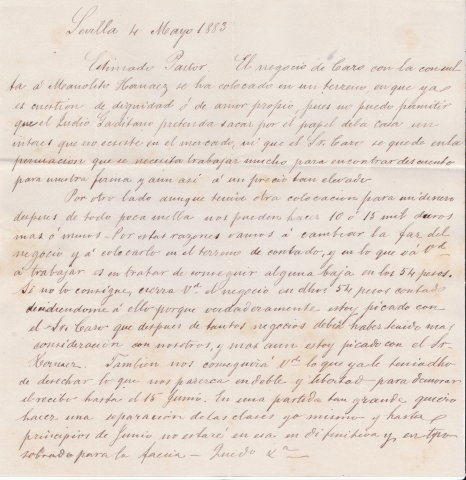 Sevilla 4 Mayo 1883
Estimado Pastor El negocio de Caro con la consul
ta á Manolito se ha colocado en un terreno, en que ya
es cuestion de dignidad ó de amor propio, pues no puedo permitir
que el Judio Gaditano pretenda sacar por el papel de la casa un
interes que no ecsiste en el mercado, ni que el Sr. Caro se quede en la
que se necesita trabajar mucho para encontrar descuento
para nuestra firma y aun asi á un precio tan elevado
Por otro lado aunque tenia otra colocacion para mi dinero
despues de todo poca mella nos pueden hacer 10 o 15 mil duros
mas ó menos. Por estas razones vamos á cambiar la faz del
negocio y á colocarlo en el terreno de contado, y en lo que vá Vd
á trabajar es en tratar de conseguir alguna baja en los 54 pesos.
Si no lo consigue, cierra Vd. el negocio en dhos 54 pesos contado
decidiendome á ello porque verdaderamente estoy picado con
el Sr. Caro que despues de tantos negocios debia haber tenido mas
consideracion con nosotros, y mas aun estoy picado con el Sr.
Tambien nos conseguirá Vd lo que ya le tenia dho
de desechar lo que nos parezca endoble y libertad para demorar
el recibo hasta el 15 Junio. En una partida tan grande quiero
hacer una separacion de las clases yo mismo y hasta
principios de Junio no estaré en esa en difinitiva y en tpo
sobrado para la faena – Quedo &a